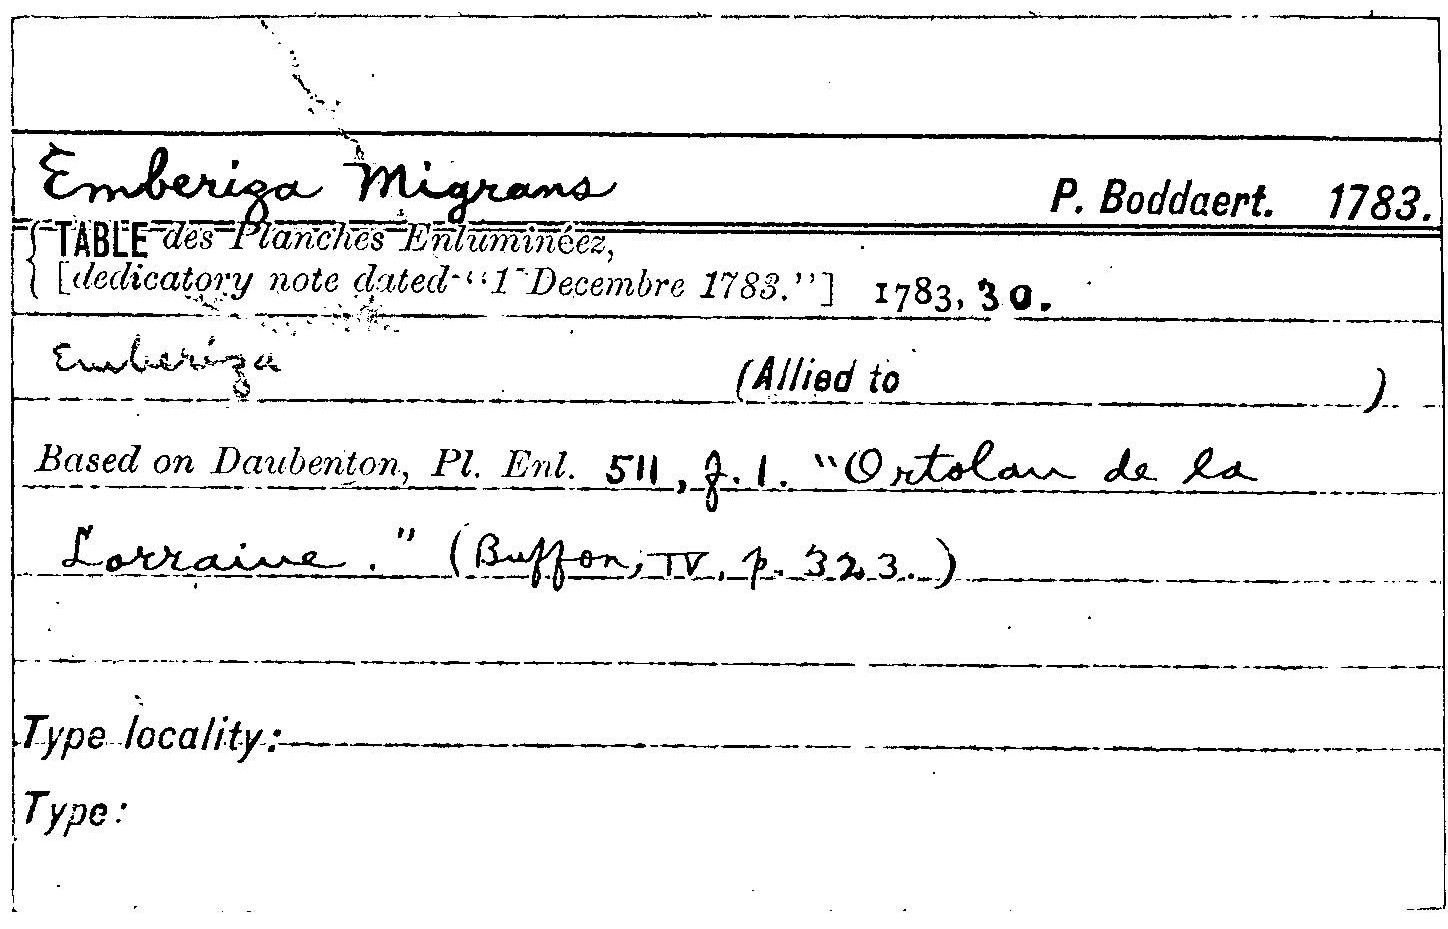 Emberiza Migrans P. Boddaert. 1783.
TABLE des Planches Enluminéez,
[dedicatory note dated "1 Decembre 1783."] 1783, 30.
Emberiza (Allied to )
Based on Daubenton, Pl. Enl. 511, f. 1. "Ortolan de la
Lorraine." (Buffon, IV, p. 323.)
Type locality:
Type: